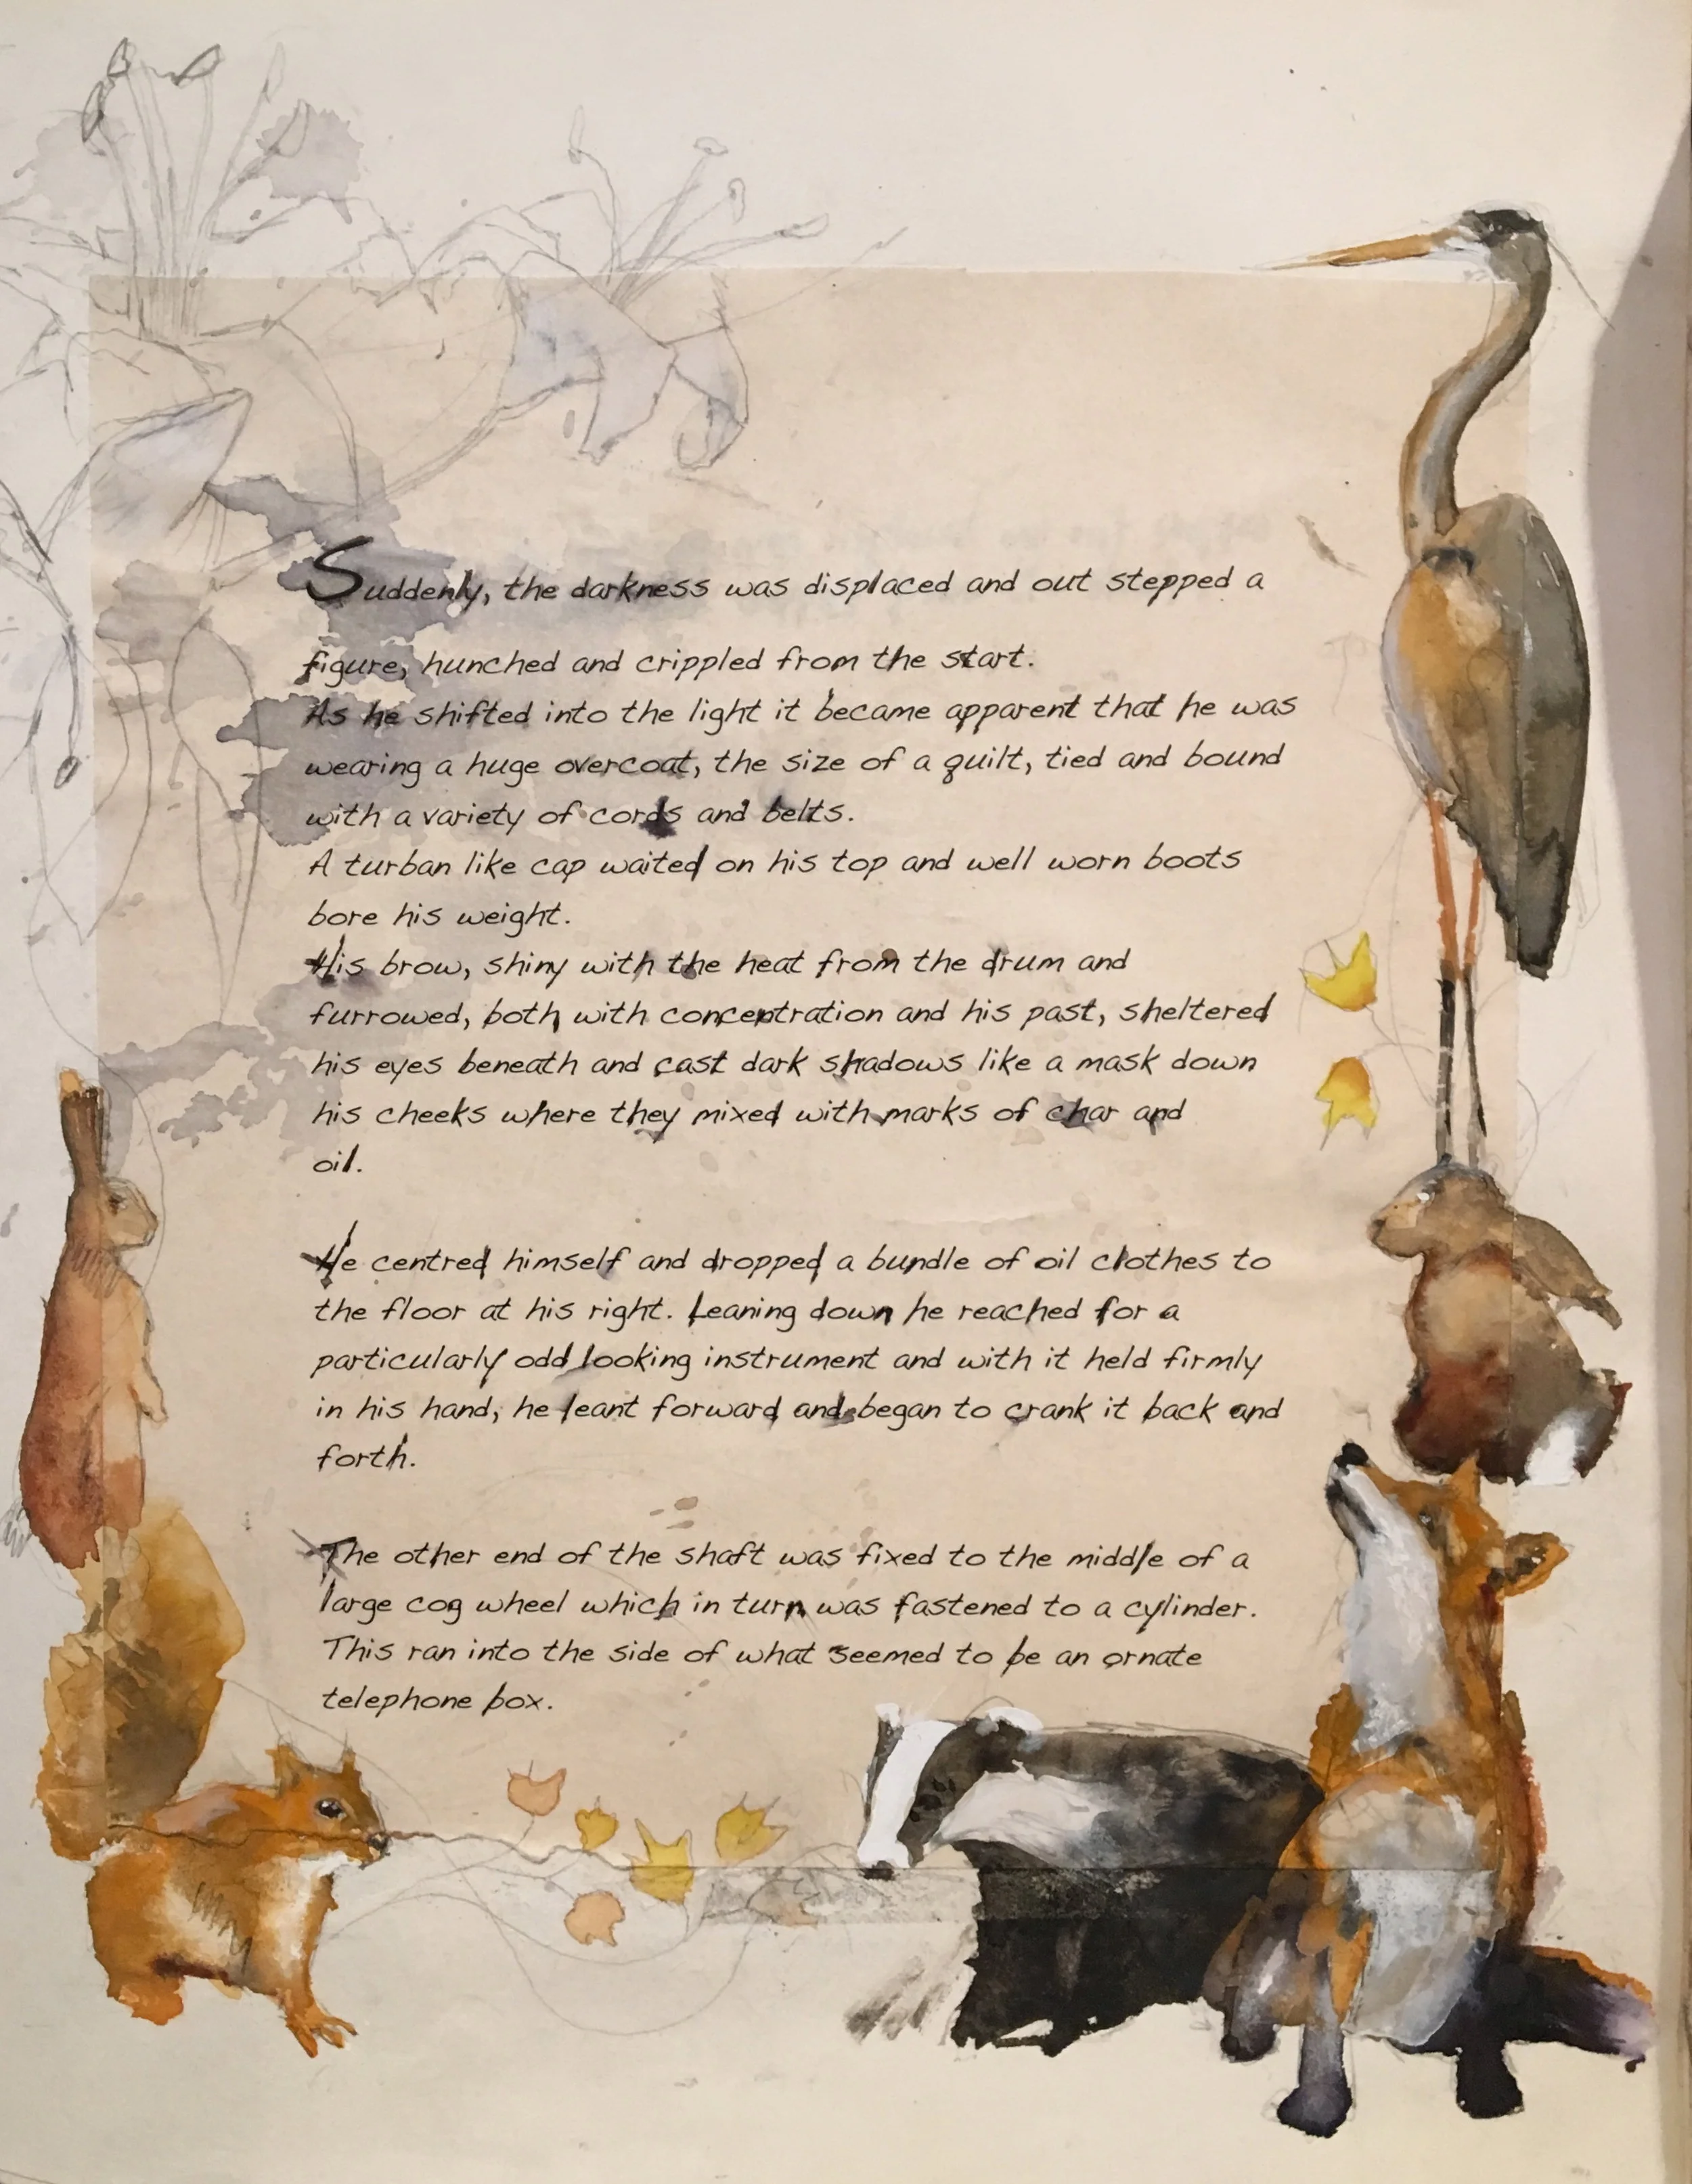 Suddenly, the darkness was displaced and out stepped a
figure, hunched and crippled from the start.
As he shifted into the light it became apparent that he was
wearing a huge overcoat, the size of a quilt, tied and bound
with a variety of cords and belts.
A turban like cap waited on his top and well worn boots
bore his weight.
His brow, shiny with the heat from the drum and
furrowed, both with concentration and his past, sheltered
his eyes beneath and cast dark shadows like a mask down
his cheeks where they mixed with marks of char and
oil.
He centred himself and dropped a bundle of oil clothes to
the floor at his right. Leaning down he reached for a
particularly odd looking instrument and with it held firmly
in his hand, he leant forward and began to crank it back and
forth.
The other end of the shaft was fixed to the middle of a
large cog wheel which in turn was fastened to a cylinder.
This ran into the side of what seemed to be an ornate
telephone box.